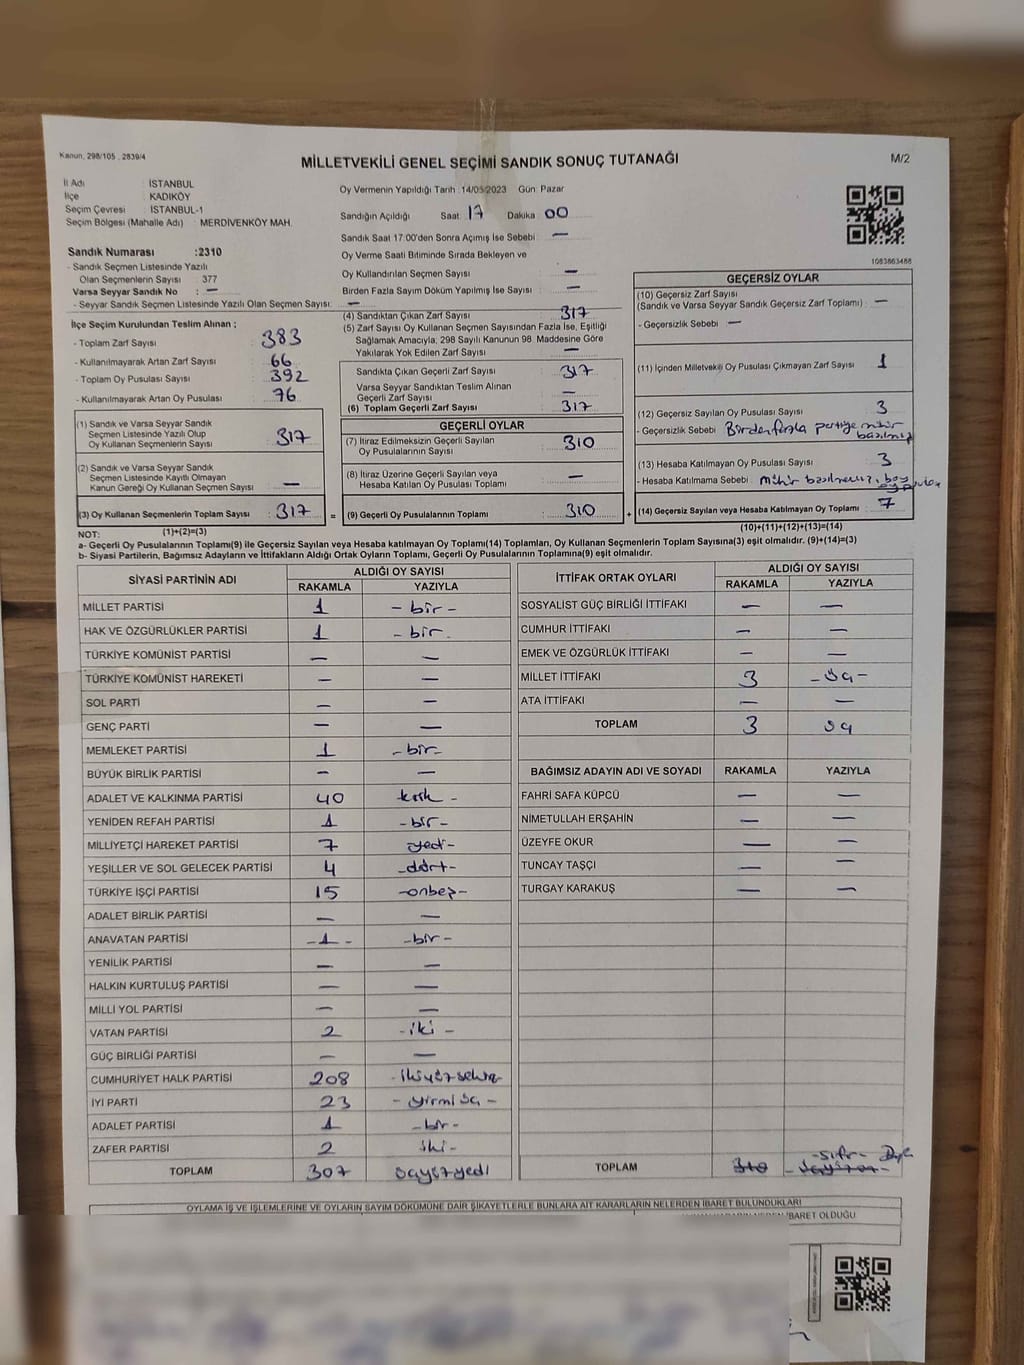 Kanun, 298/105 , 2839/4
MİLLETVEKİLİ GENEL SEÇİMİ SANDIK SONUÇ TUTANAĞI
M/2
İl Adı : İSTANBUL
İlçe : KADIKÖY
Seçim Çevresi : İSTANBUL-1
Seçim Bölgesi (Mahalle Adı) : MERDİVENKÖY MAH.
Oy Vermenin Yapıldığı Tarih :14/05/2023 Gün: Pazar
Sandığın Açıldığı Saat: 17 Dakika: 00
Sandık Saat 17:00'den Sonra Açımış İse Sebebi : —
Oy Verme Saati Bitiminde Sırada Bekleyen ve
Oy Kullandırılan Seçmen Sayısı : —
Birden Fazla Sayım Döküm Yapılmış İse Sayısı : —
1083863488
Sandık Numarası :2310
- Sandık Seçmen Listesinde Yazılı
Olan Seçmenlerin Sayısı : 377
Varsa Seyyar Sandık No : —
- Seyyar Sandık Seçmen Listesinde Yazılı Olan Seçmen Sayısı: —
İlçe Seçim Kurulundan Teslim Alınan ;
- Toplam Zarf Sayısı : 383
- Kullanılmayarak Artan Zarf Sayısı : 66
- Toplam Oy Pusulası Sayısı : 392
- Kullanılmayarak Artan Oy Pusulası : 76
(1) Sandık ve Varsa Seyyar Sandık
Seçmen Listesinde Yazılı Olup
Oy Kullanan Seçmenlerin Sayısı : 317
(2) Sandık ve Varsa Seyyar Sandık
Seçmen Listesinde Kayıtlı Olmayan
Kanun Gereği Oy Kullanan Seçmen Sayısı : —
(3) Oy Kullanan Seçmenlerin Toplam Sayısı : 317 =
(4) Sandıktan Çıkan Zarf Sayısı : 317
(5) Zarf Sayısı Oy Kullanan Seçmen Sayısından Fazla İse, Eşitliği
Sağlamak Amacıyla, 298 Sayılı Kanunun 98. Maddesine Göre
Yakılarak Yok Edilen Zarf Sayısı : —
Sandıkta Çıkan Geçerli Zarf Sayısı : 317
Varsa Seyyar Sandıktan Teslim Alınan
Geçerli Zarf Sayısı :
(6) Toplam Geçerli Zarf Sayısı : 317
GEÇERLİ OYLAR
(7) İtiraz Edilmeksizin Geçerli Sayılan
Oy Pusulalarının Sayısı : 310
(8) İtiraz Üzerine Geçerli Sayılan veya
Hesaba Katılan Oy Pusulası Toplamı : —
(9) Geçerli Oy Pusulalarının Toplamı : 310 +
GEÇERSİZ OYLAR
(10) Geçersiz Zarf Sayısı
(Sandık ve Varsa Seyyar Sandık Geçersiz Zarf Toplamı) : —
- Geçersizlik Sebebi : —
(11) İçinden Milletvekili Oy Pusulası Çıkmayan Zarf Sayısı : 1
(12) Geçersiz Sayılan Oy Pusulası Sayısı : 3
- Geçersizlik Sebebi : Birden fazla partiye mühür
basılmış
(13) Hesaba Katılmayan Oy Pusulası Sayısı : 3
- Hesaba Katılmama Sebebi : mühür basılmamış, boş
oy pusulası
(14) Geçersiz Sayılan veya Hesaba Katılmayan Oy Toplamı : 7
NOT: (1)+(2)=(3)
(10)+(11)+(12)+(13)=(14)
a- Geçerli Oy Pusulalarının Toplamı(9) ile Geçersiz Sayılan veya Hesaba katılmayan Oy Toplamı(14) Toplamları, Oy Kullanan Seçmenlerin Toplam Sayısına(3) eşit olmalıdır. (9)+(14)=(3)
b- Siyasi Partilerin, Bağımsız Adayların ve İttifakların Aldığı Ortak Oyların Toplamı, Geçerli Oy Pusulalarının Toplamına(9) eşit olmalıdır.
SİYASİ PARTİNİN ADI ALDIĞI OY SAYISI
RAKAMLA YAZIYLA
MİLLET PARTİSİ 1 - bir -
HAK VE ÖZGÜRLÜKLER PARTİSİ 1 - bir -
TÜRKİYE KOMÜNİST PARTİSİ — —
TÜRKİYE KOMÜNİST HAREKETİ — —
SOL PARTİ — —
GENÇ PARTİ — —
MEMLEKET PARTİSİ 1 - bir -
BÜYÜK BİRLİK PARTİSİ — —
ADALET VE KALKINMA PARTİSİ 40 kırk -
YENİDEN REFAH PARTİSİ 1 - bir -
MİLLİYETÇİ HAREKET PARTİSİ 7 - yedi -
YEŞİLLER VE SOL GELECEK PARTİSİ 4 - dört -
TÜRKİYE İŞÇİ PARTİSİ 15 - onbeş -
ADALET BİRLİK PARTİSİ — —
ANAVATAN PARTİSİ - 1 - - bir -
YENİLİK PARTİSİ — —
HALKIN KURTULUŞ PARTİSİ — —
MİLLİ YOL PARTİSİ — —
VATAN PARTİSİ 2 - iki -
GÜÇ BİRLİĞİ PARTİSİ — —
CUMHURİYET HALK PARTİSİ 208 - ikiyüzsekiz -
İYİ PARTİ 23 - yirmi üç -
ADALET PARTİSİ 1 - bir -
ZAFER PARTİSİ 2 iki -
TOPLAM 307 üçyüzyedi
İTTİFAK ORTAK OYLARI ALDIĞI OY SAYISI
RAKAMLA YAZIYLA
SOSYALİST GÜÇ BİRLİĞİ İTTİFAKI — —
CUMHUR İTTİFAKI — —
EMEK VE ÖZGÜRLÜK İTTİFAKI — —
MİLLET İTTİFAKI 3 - üç -
ATA İTTİFAKI — —
TOPLAM 3 üç
BAĞIMSIZ ADAYIN ADI VE SOYADI RAKAMLA YAZIYLA
FAHRİ SAFA KÜPCÜ — —
NİMETULLAH ERŞAHİN — —
ÜZEYFE OKUR — —
TUNCAY TAŞÇI — —
TURGAY KARAKUŞ — —
TOPLAM 310 - sıfır -
- üçyüzon -
OYLAMA İŞ VE İŞLEMLERİNE VE OYLARIN SAYIM DÖKÜMÜNE DAİR ŞİKAYETLERLE BUNLARA AİT KARARLARIN NELERDEN İBARET BULUNDUKLARI
İBARET OLDUĞU